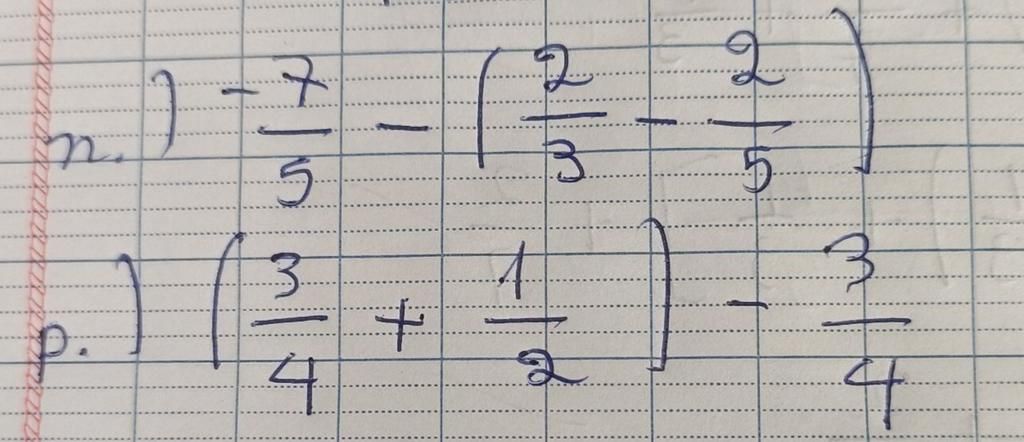 n.) -7/5 - (2/3 - 2/5)
p.) (3/4 + 1/2) - 3/4